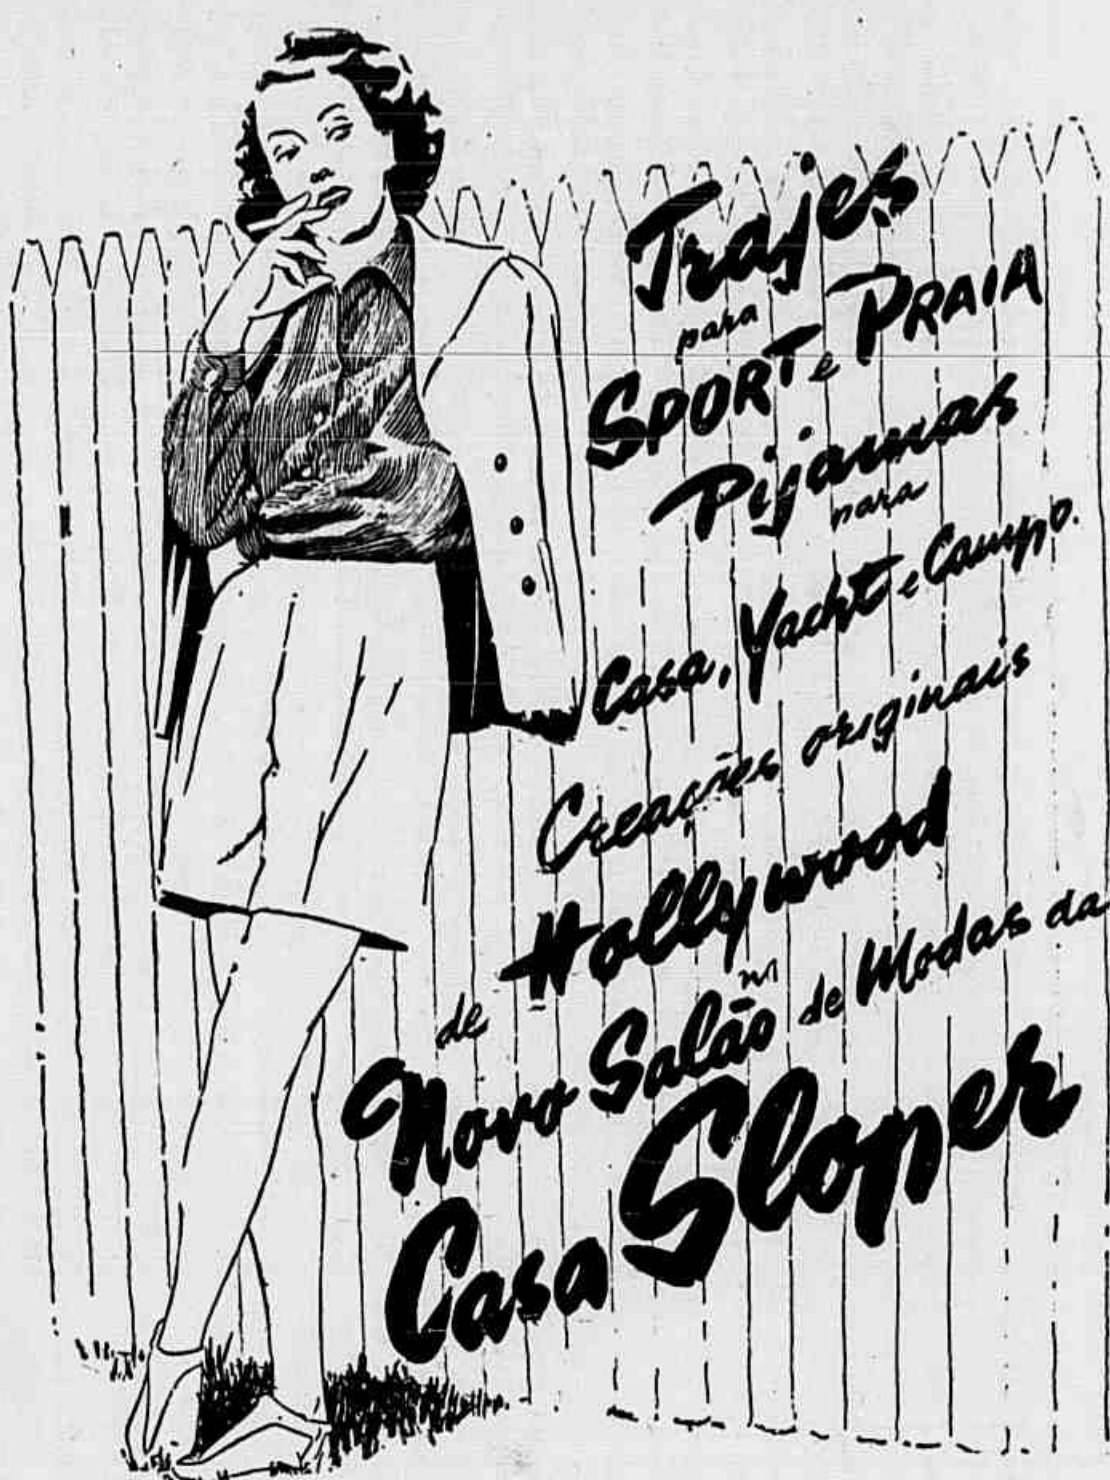 Trajes
para
SPORT e PRAIA
Pijamas
para
Casa, Yacht e Campo.
Creações originais
de Hollywood
no
Novo Salão de Modas da
Casa Sloper